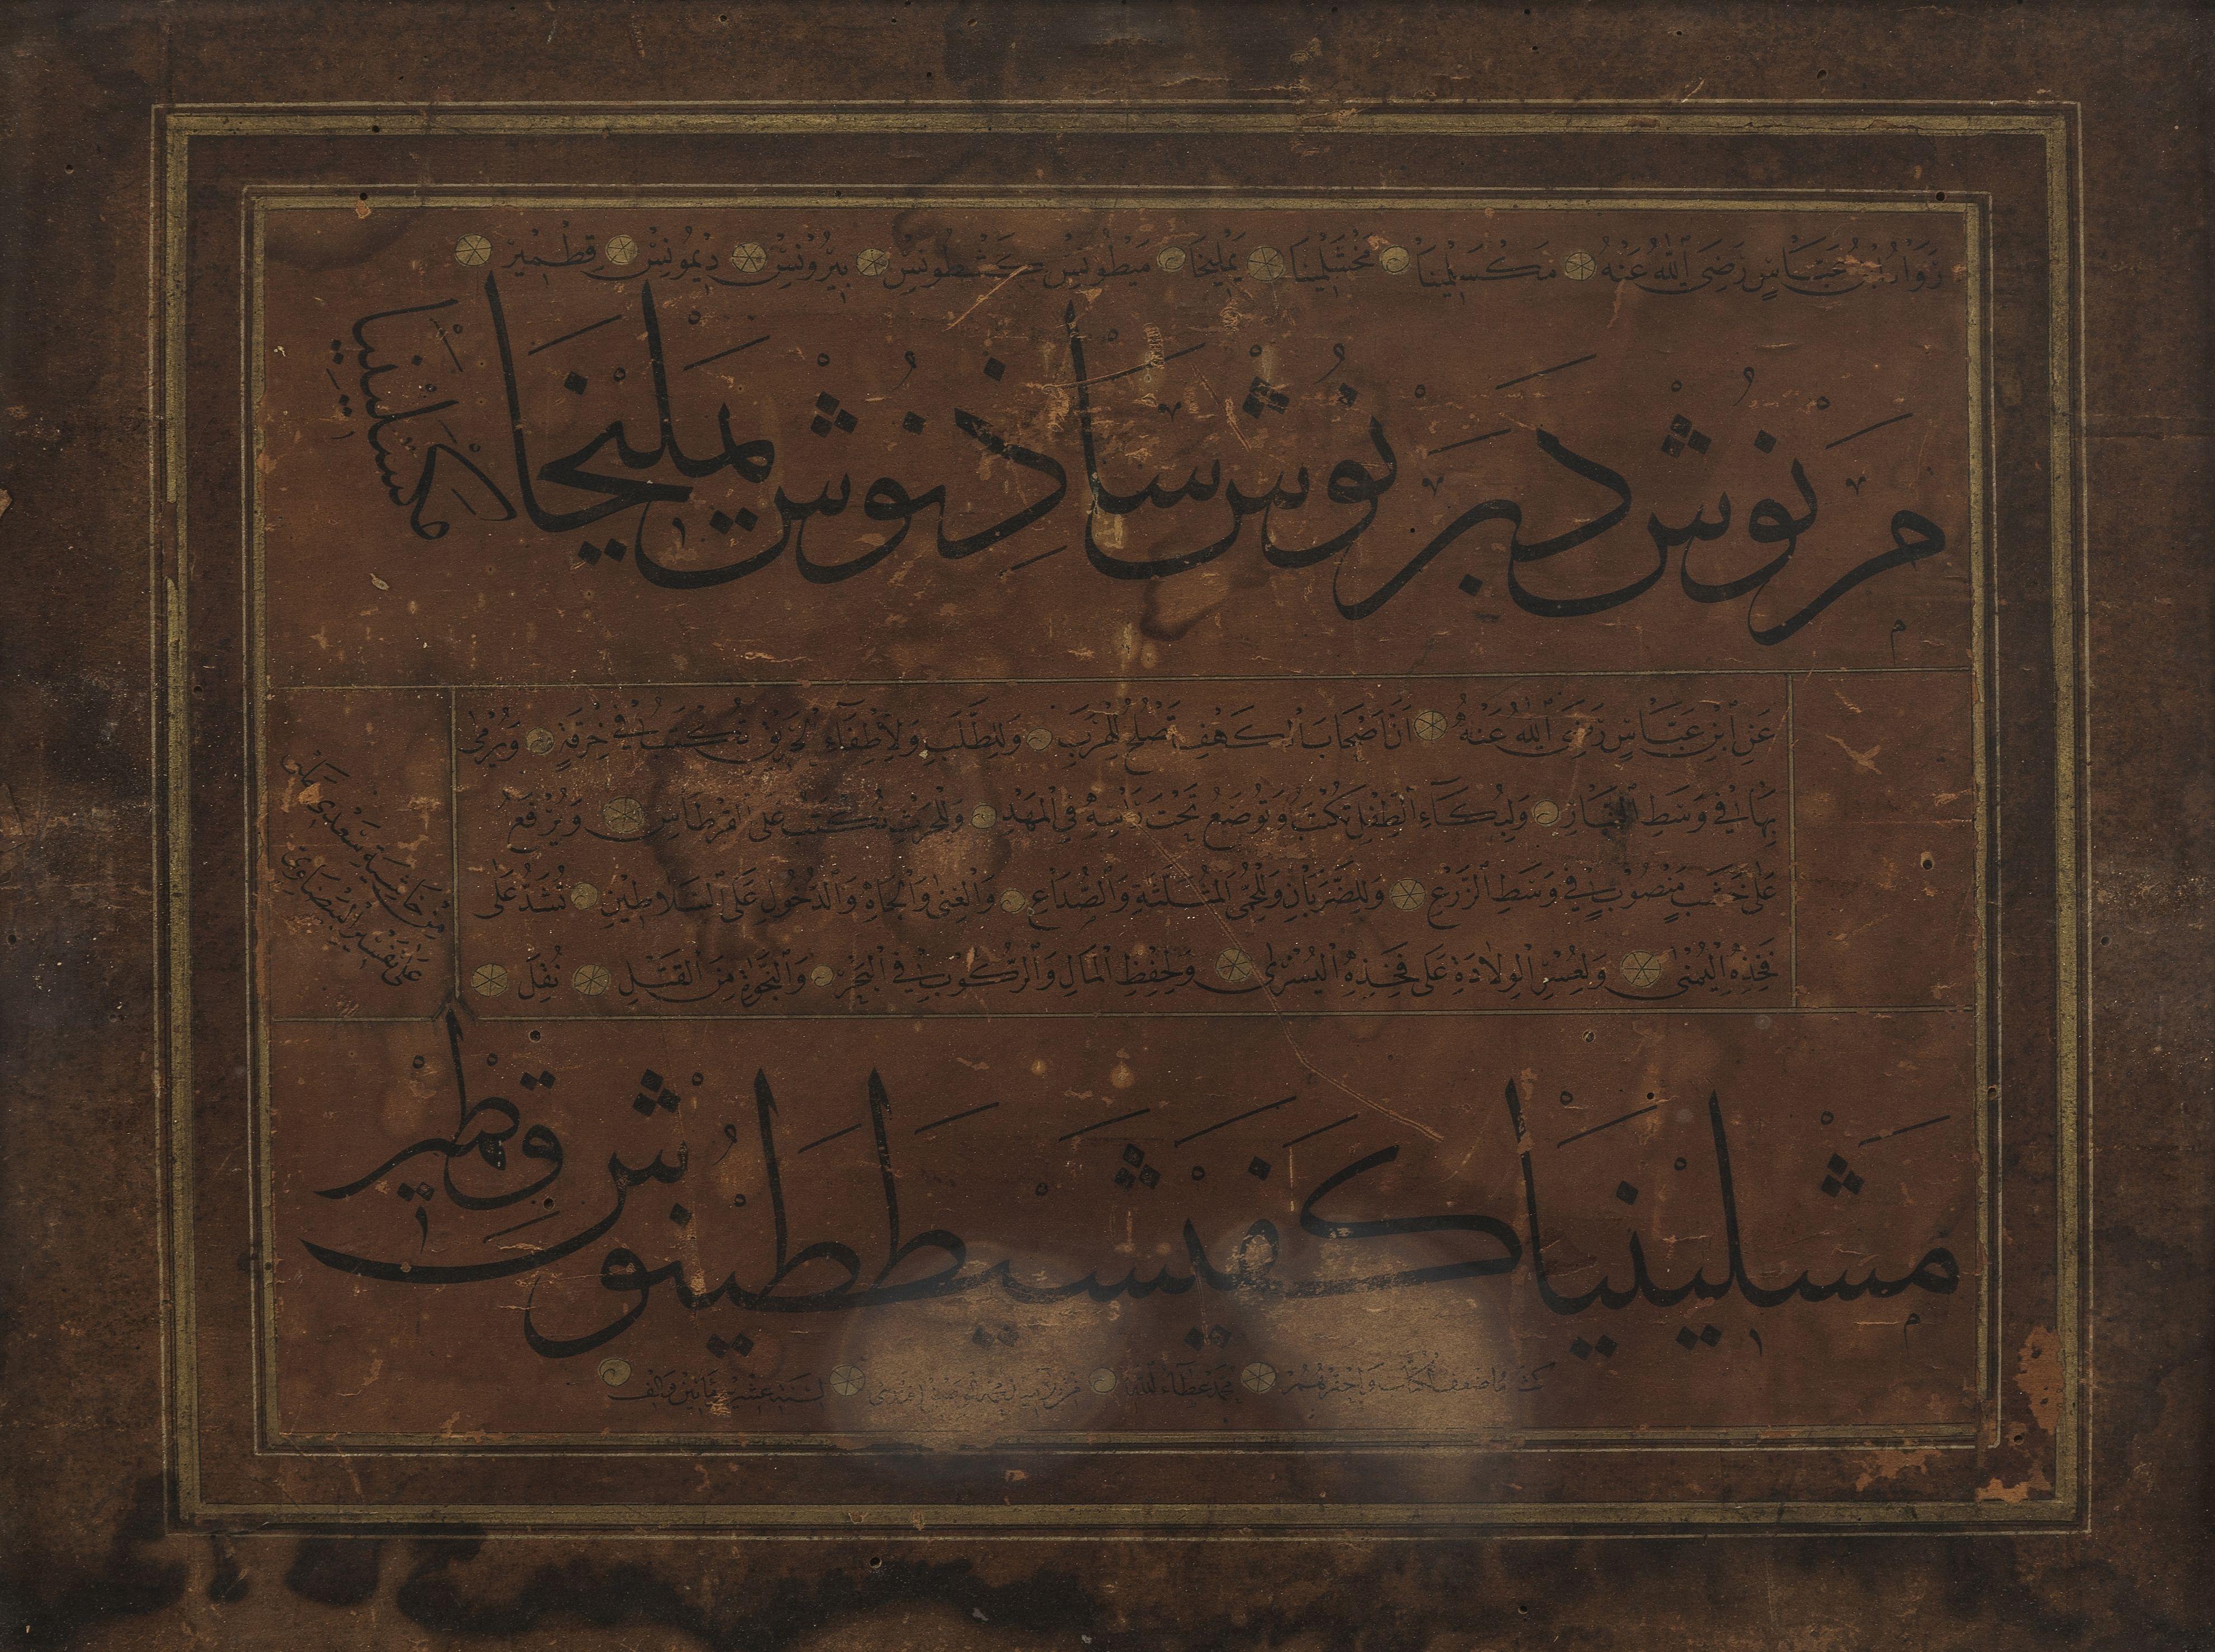 رَوَاهُ ابْنُ عَبَّاسٍ رَضِيَ اللّٰهُ عَنْهُ مَكْسَلْمِينَا مَحْشَلْمِينَا يَمْلِيخَا مَيْطُونِسْ كَشْطُونِسْ بَيْرُونِسْ دِيْمُونِسْ قِطْمِيرْ
مَرْنُوشْ دَبَرْنُوشْ سَاذَنُوشْ يَمْلِيخَا
مَكْسَلِينَا
عَنِ ابْنِ عَبَّاسٍ رَضِيَ اللّٰهُ عَنْهُ أَنَّ أَصْحَابَ الْكَهْفِ تَصْلُحُ لِلْهَرَبِ وَلِلطَّلَبِ وَلِإِطْفَاءِ الْحَرِيقِ تُكْتَبُ فِي خِرْقَةٍ وَيُرْمٰى
بِهَا فِي وَسَطِ النَّارِ وَلِبُكَاءِ الطِّفْلِ تُكْتَبُ وَتُوضَعُ تَحْتَ رَأْسِهِ فِي الْمَهْدِ وَلِلْحَرْثِ تُكْتَبُ عَلَى الْقِرْطَاسِ وَيُرْفَعُ
عَلٰى خَشَبٍ مَنْصُوبٍ فِي وَسَطِ الزَّرْعِ وَلِلضَّرَبَانِ وَلِلْحُمَّى الْمُثَلَّثَةِ وَالصُّدَاعِ وَالْغِنٰى وَالْجَاهِ وَالدُّخُولِ عَلَى السَّلَاطِينِ تُشَدُّ عَلٰى
فَخِذِهِ الْيُمْنٰى وَلِعُسْرِ الْوِلَادَةِ عَلٰى فَخِذِهِ الْيُسْرٰى وَلِحِفْظِ الْمَالِ وَالرُّكُوبِ فِي الْبَحْرِ وَالنَّجَاةِ مِنَ الْقَتْلِ نُقِلَ
مِنْ حَاشِيَةِ سَعْدِي چَلَبِي
عَلٰى تَفْسِيرِ الْبَيْضَاوِي
مَشْلِينِيَا كَفَيْشِيطَطِيُوشْ قِطْمِيرْ
كتبه اضعف الكتاب واحقرهم محمد عطاء الله لسنة عشر مأتين والف